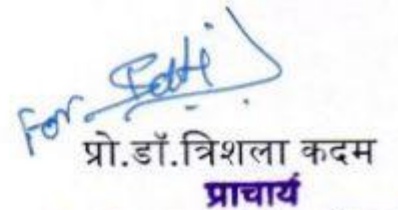 For
प्रो.डॉ.त्रिशला कदम
प्राचार्य